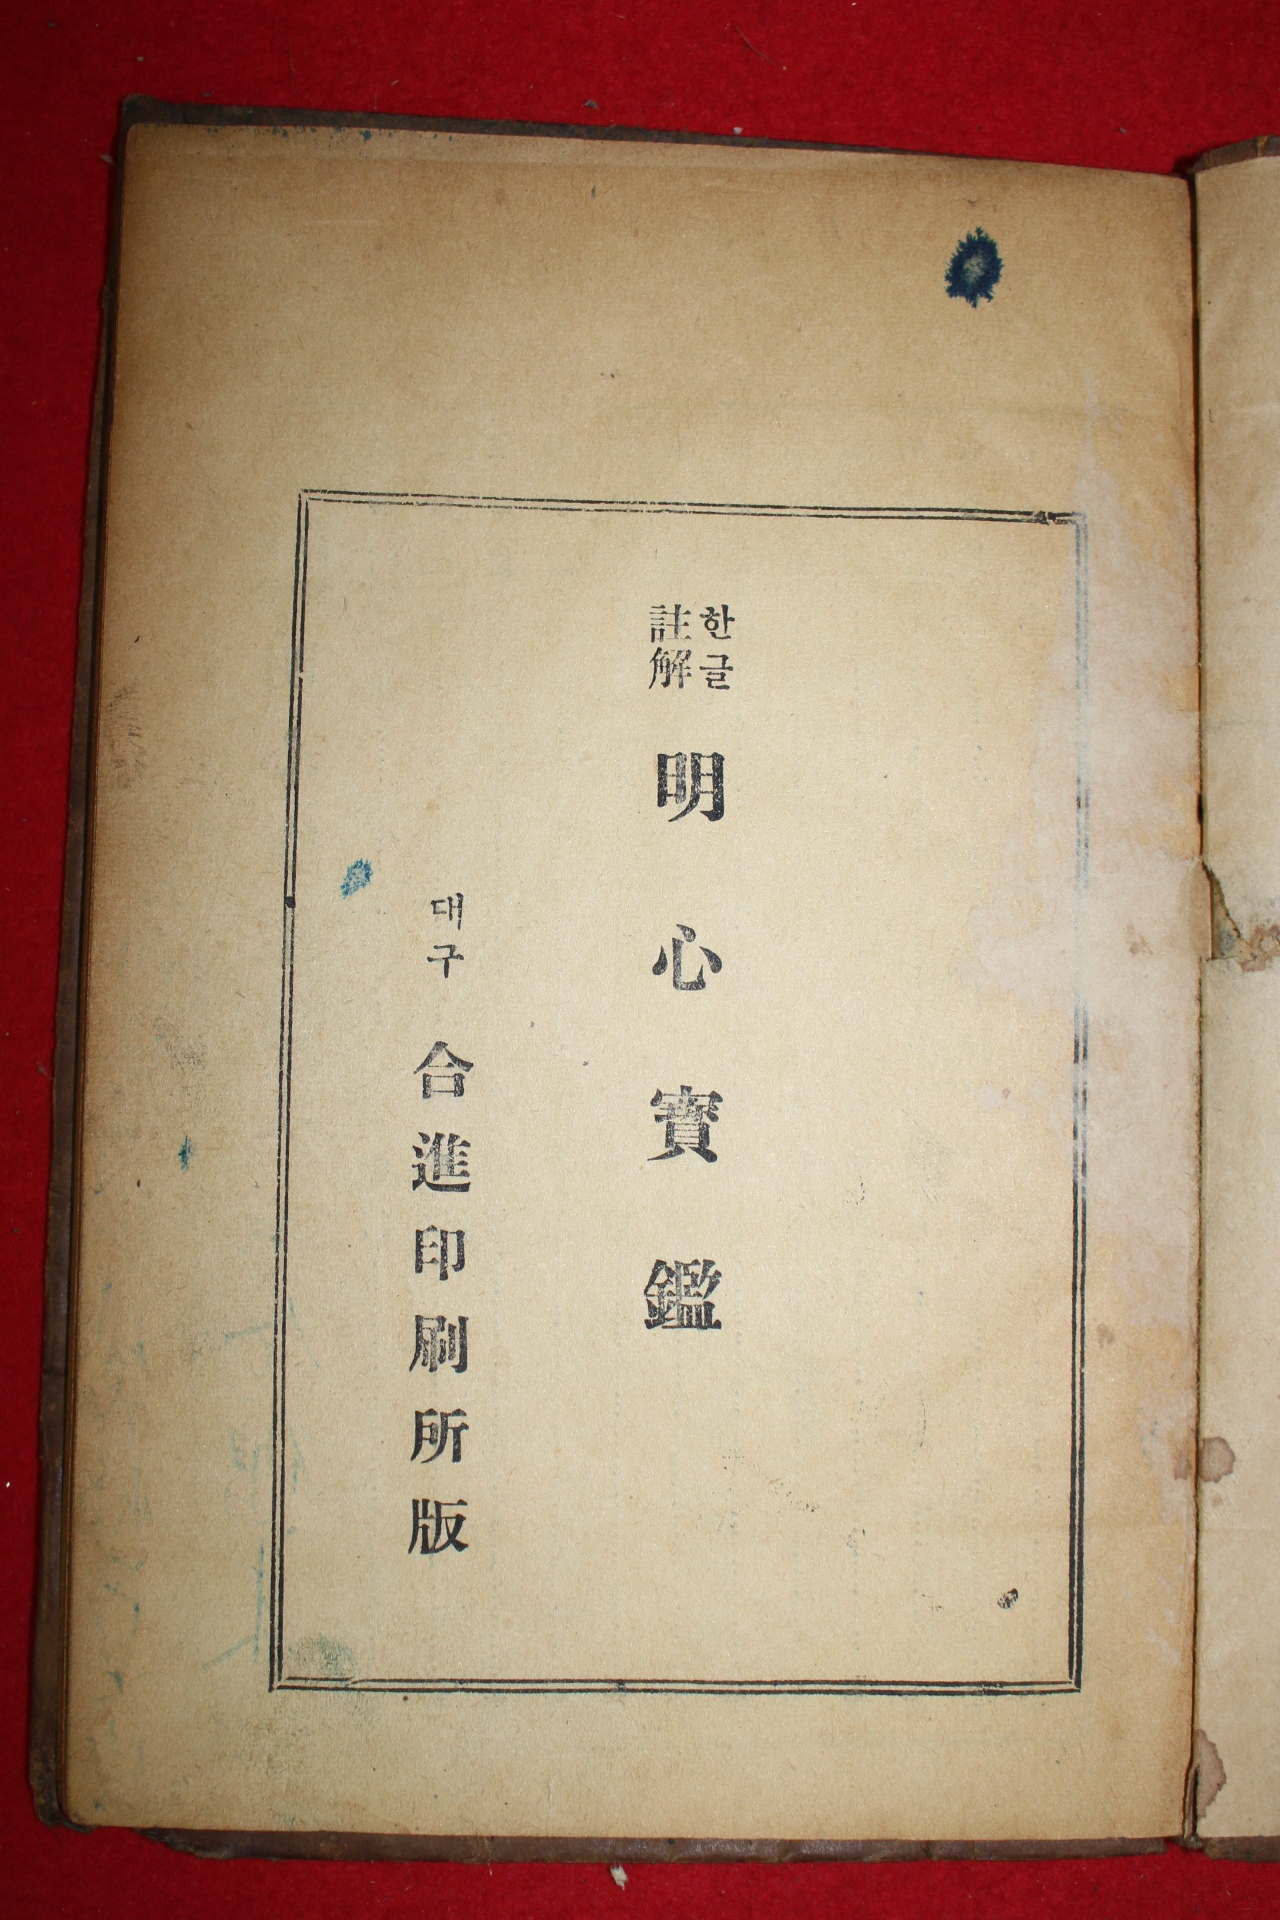 한글
註解
明心寶鑑
대구 合進印刷所版